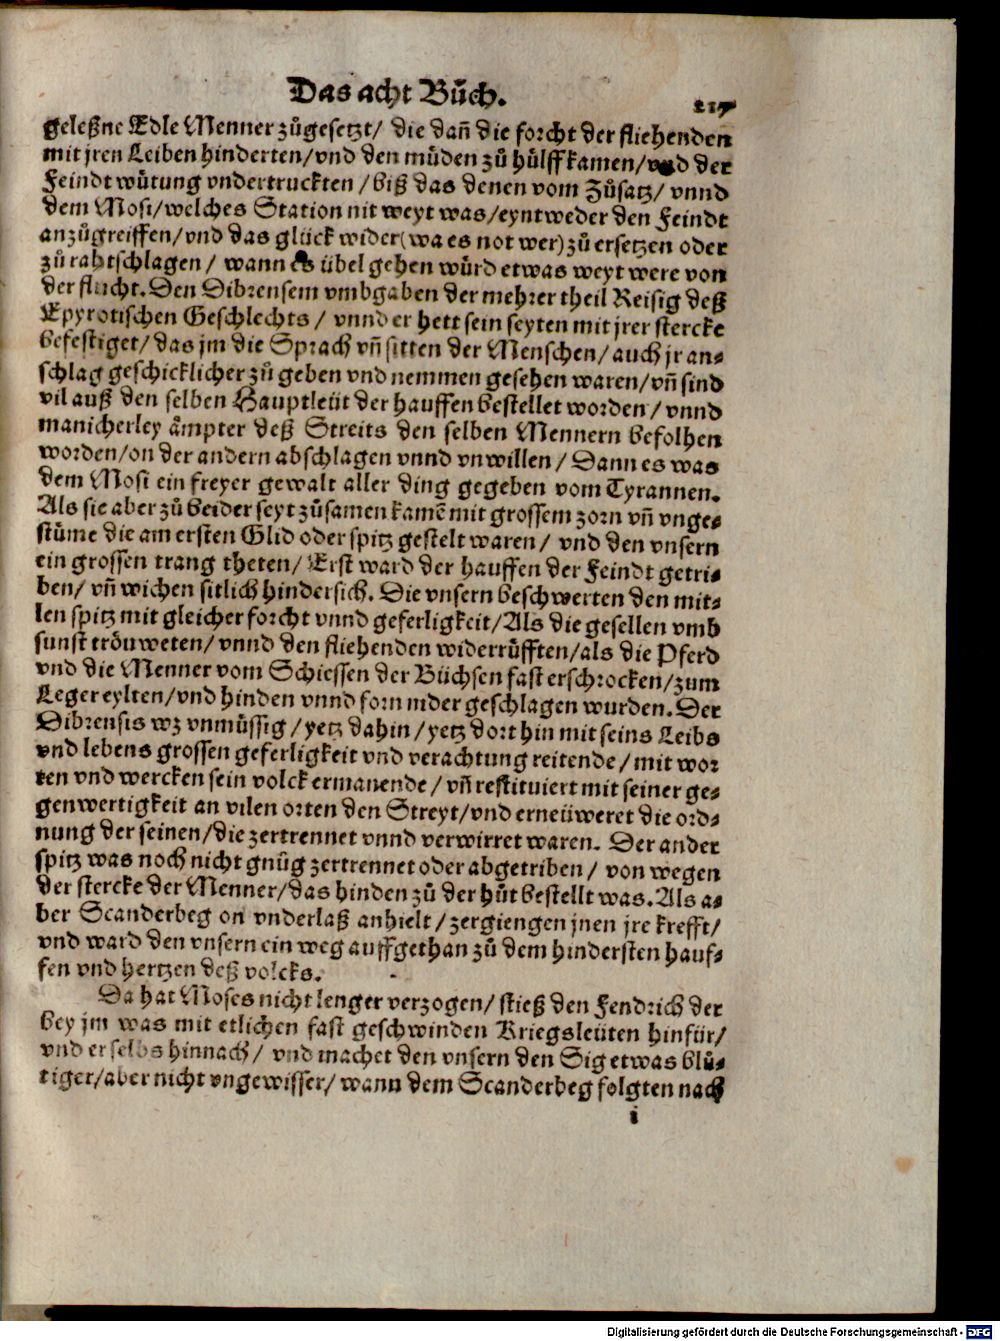 Das acht Bůch.
217
geleßne Edle Menner zůgesetzt/ die dañ die forcht der fliehenden
mit jren Leiben hinderten/vnd den můden zů hülff kamen/vnd der
Feindt wůtung vndertruckten /biß das denen vom Zůsatz/ vnnd
dem Mosi/welches Station nit weyt was/eyntweder den Feindt
anzůgreiffen/vnd das glück wider(wa es not wer)zů ersetzen oder
zů rahtschlagen/ wann es übel gehen würd etwas weyt were von
der flucht. Den Dibrensem vmbgaben der mehrer theil Reisig deß
Epyrotischen Geschlechts/ vnnd er hett sein seyten mit jrer stercke
befestiget/das jm die Sprach vñ sitten der Menschen/auch jr an-
schlag geschicklicher zů geben vnd nemmen gesehen waren/vñ sind
vil auß den selben Hauptleüt der hauffen bestellet worden/ vnnd
manicherley åmpter deß Streits den selben Mennern befolhen
worden/on der andern abschlagen vnnd vnwillen/ Dann es was
dem Mosi ein freyer gewalt aller ding gegeben vom Tyrannen.
Als sie aber zů beider seyt zůsamen kamē mit grossem zorn vñ vnge-
stüme die am ersten Glid oder spitz gestelt waren/ vnd den vnsern
ein grossen trang theten/ Erst ward der hauffen der Feindt getri-
ben/ vñ wichen sitlich hindersich. Die vnsern beschwerten den mit-
len spitz mit gleicher forcht vnnd geferligkeit/Als die gesellen vmb
sunst tröuweten/vnnd den fliehenden widerrůfften/als die Pferd
vnd die Menner vom Schiessen der Büchsen fast erschrocken/zum
Leger eylten/vnd hinden vnnd forn nider geschlagen wurden. Der
Dibrensis wz vnmůssig/yetz dahin/yetz dort hin mit seins Leibs
vnd lebens grossen geferligkeit vnd verachtung reitende/ mit wor
ten vnd wercken sein volck ermanende/ vñ restituiert mit seiner ge-
genwertigkeit an vilen orten den Streyt/vnd erneüweret die ord-
nung der seinen/die zertrennet vnnd verwirret waren. Der ander
spitz was noch nicht gnůg zertrennet oder abgetriben/ von wegen
der stercke der Menner/das hinden zů der hůt bestellt was. Als a-
ber Scanderbeg on vnderlaß anhielt/zergiengen jnen jre krefft/
vnd ward den vnsern ein weg auffgethan zů dem hindersten hauf-
fen vnd hertzen deß volcks.
Da hat Moses nicht lenger verzogen/ stieß den Fendrich der
bey jm was mit etlichen fast geschwinden Kriegsleüten hinfür/
vnd er selbs hinnach/ vnd machet den vnsern den Sig etwas blů-
tiger/aber nicht vngewisser/ wann dem Scanderbeg folgten nach
i
Digitalisierung gefördert durch die Deutsche Forschungsgemeinschaft - DFG